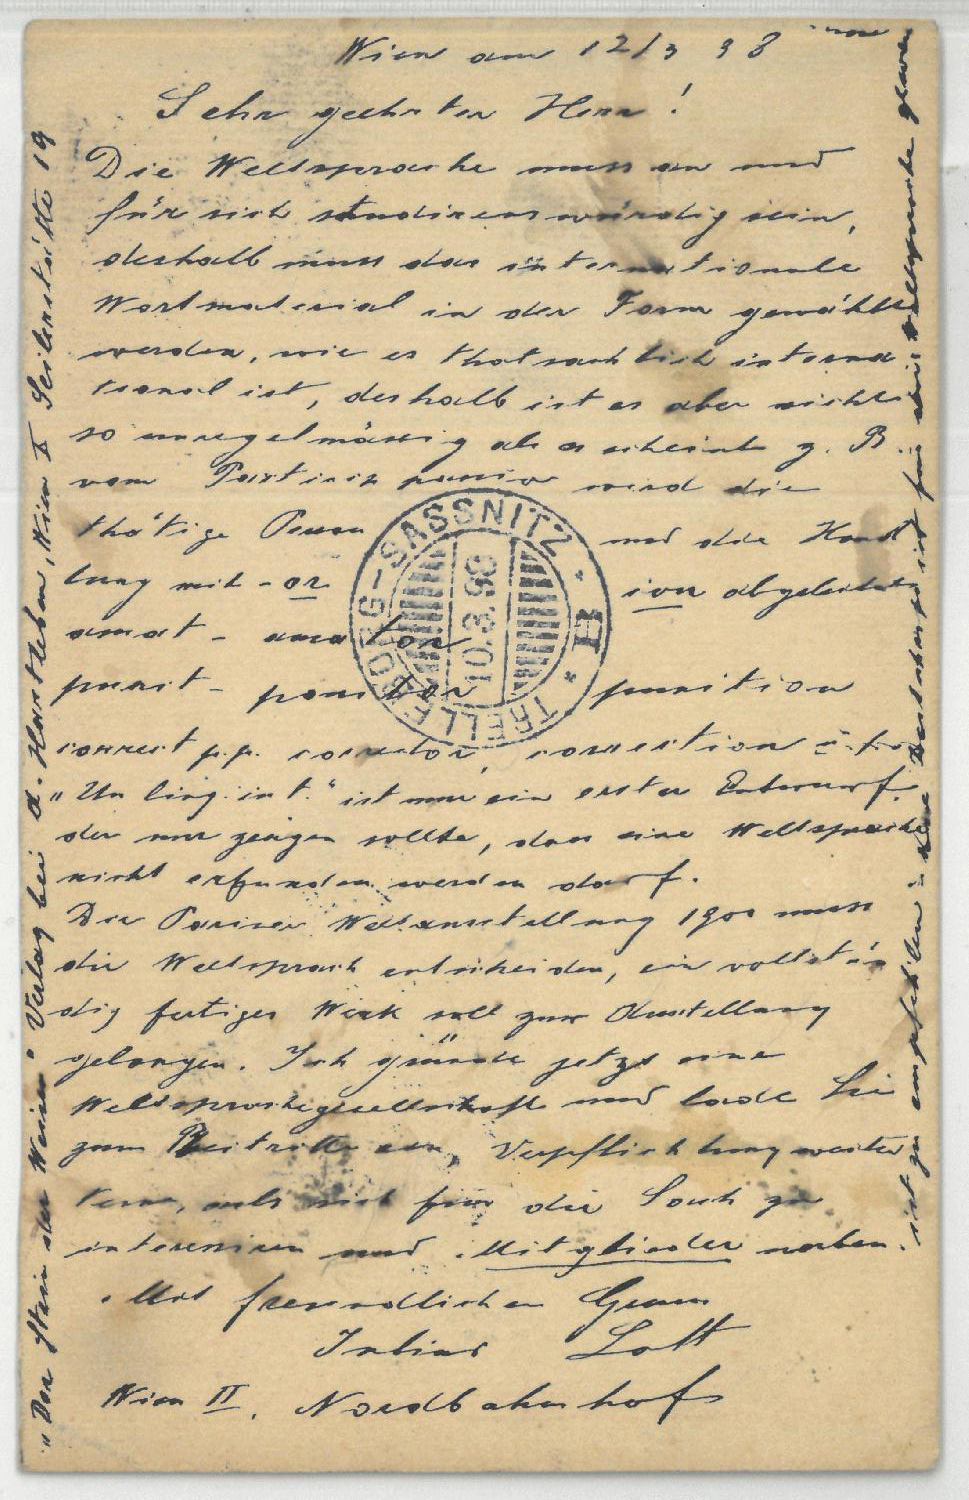 Wien am 12/3 98
Sehr geehrter Herr!
Die Weltsprache muss an und
für sich studirenswürdig sein,
deshalb muss das internationale
Wortmaterial in der Form gewählt
werden, wie es thatsächlich interna
tional ist, deshalb ist es aber nicht
so unregelmässig als es scheint z. B.
vom Particip passiv wird die
thätige Person und die Hand
lung mit -or ion abgeleitet
amat - amator
punit - punitor punition
correct p.p. corrector, correction
„Un ling. int." ist nur ein erster Entwurf,
der nur zeigen sollte, dass eine Weltsprache
nicht erfunden werden darf.
Die Pariser Weltausstellung 1900 muss
die Weltsprach entscheiden, ein vollstän
dig fertiges Werk soll zur Ausstellung
gelangen. Ich gründe jetzt eine
Weltsprachegesellschaft und lade Sie
zum Beitritte ein, Verpflichtung weiter
keine, als sich für die Sach zu
interessiren und Mitglieder werben.
Mit freundlichen Gruss
Julius Lott
Wien II. Nordbahnhof
„Der Stein der Weisen" Verlag bei A. Hartleben, Wien I Seilerstätte 19
ist zu empfehlen
SASSNITZ
TRELLEBORG
B
10.3.98